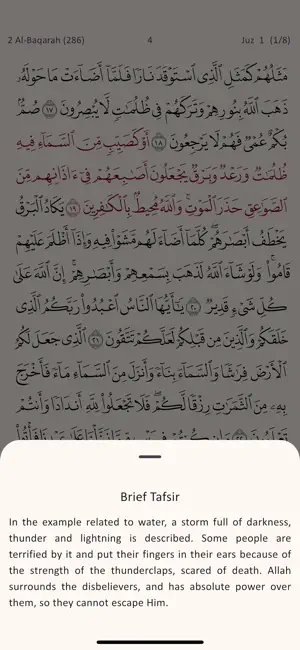 2 Al-Baqarah (286) 4 Juz 1 (1/8)
مَثَلُهُمْ كَمَثَلِ ٱلَّذِى ٱسْتَوْقَدَ نَارًا فَلَمَّآ أَضَآءَتْ مَا حَوْلَهُۥ
ذَهَبَ ٱللَّهُ بِنُورِهِمْ وَتَرَكَهُمْ فِى ظُلُمَٰتٍ لَّا يُبْصِرُونَ ١٧ صُمٌّۢ
بُكْمٌ عُمْىٌ فَهُمْ لَا يَرْجِعُونَ ١٨ أَوْ كَصَيِّبٍ مِّنَ ٱلسَّمَآءِ فِيهِ
ظُلُمَٰتٌ وَرَعْدٌ وَبَرْقٌ يَجْعَلُونَ أَصَٰبِعَهُمْ فِىٓ ءَاذَانِهِم مِّنَ
ٱلصَّوَٰعِقِ حَذَرَ ٱلْمَوْتِ ۚ وَٱللَّهُ مُحِيطٌۢ بِٱلْكَٰفِرِينَ ١٩ يَكَادُ ٱلْبَرْقُ
يَخْطَفُ أَبْصَٰرَهُمْ ۖ كُلَّمَآ أَضَآءَ لَهُم مَّشَوْا۟ فِيهِ وَإِذَآ أَظْلَمَ عَلَيْهِمْ
قَامُوا۟ ۚ وَلَوْ شَآءَ ٱللَّهُ لَذَهَبَ بِسَمْعِهِمْ وَأَبْصَٰرِهِمْ ۚ إِنَّ ٱللَّهَ عَلَىٰ
كُلِّ شَىْءٍ قَدِيرٌ ٢٠ يَٰٓأَيُّهَا ٱلنَّاسُ ٱعْبُدُوا۟ رَبَّكُمُ ٱلَّذِى
خَلَقَكُمْ وَٱلَّذِينَ مِن قَبْلِكُمْ لَعَلَّكُمْ تَتَّقُونَ ٢١ ٱلَّذِى جَعَلَ لَكُمُ
ٱلْأَرْضَ فِرَٰشًا وَٱلسَّمَآءَ بِنَآءً وَأَنزَلَ مِنَ ٱلسَّمَآءِ مَآءً فَأَخْرَجَ
بِهِۦ مِنَ ٱلثَّمَرَٰتِ رِزْقًا لَّكُمْ ۖ فَلَا تَجْعَلُوا۟ لِلَّهِ أَندَادًا وَأَنتُمْ
Brief Tafsir
In the example related to water, a storm full of darkness,
thunder and lightning is described. Some people are
terrified by it and put their fingers in their ears because of
the strength of the thunderclaps, scared of death. Allah
surrounds the disbelievers, and has absolute power over
them, so they cannot escape Him.